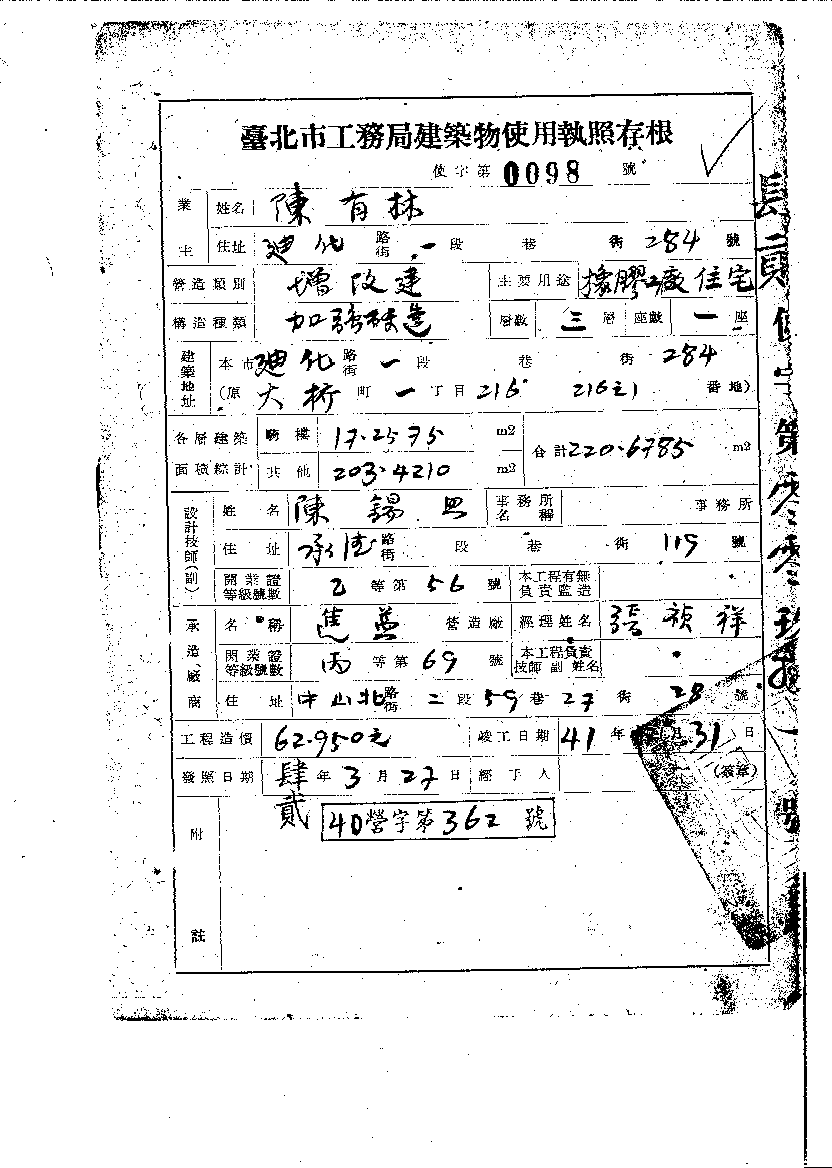 臺北市工務局建築物使用執照存根
使字第0098號
業主 姓名 陳有林
住址 迪化路街一段 巷 街284號
營造類別 增改建 主要用途 橡膠工廠住宅
構造種類 加強磚造 層數 三層 座數 一座
建築地址 本市迪化路街一段 巷 街284
(原大桥町一丁目216 216之1番地)
各層建築面積綜計 騎樓 17.2575 m2 合計220.6785 m2
其他 203.4210 m2
設計技師(副) 姓名 陳錫 事務所名稱 事務所
住址 承德路街 段 巷 街119號
開業證等級號數 乙等第56號 本工程有無負責監造
承造廠商 名稱 營造廠 經理姓名 張禎祥
開業證等級號數 丙等第69號 本工程負責技師副姓名
住址 中山北路街二段59巷27街28號
工程造價 62.950元 竣工日期 41年 月31日
發照日期 肆貳年3月27日 經手人 (簽章)
附註 40營字第362號